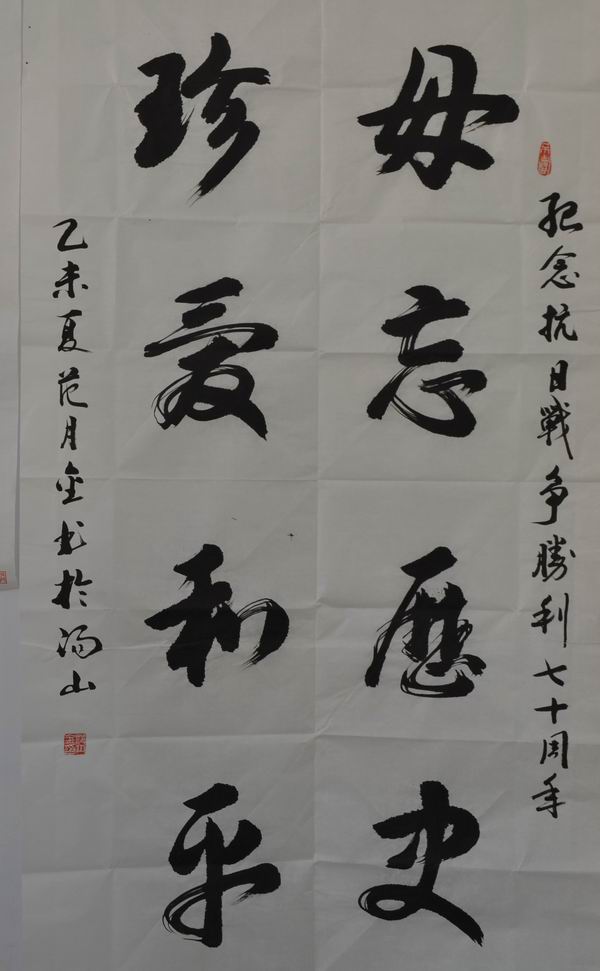 紀念抗日戰争勝利七十周年
毋忘歷史
珍愛和平
乙未夏范月金书於汤山